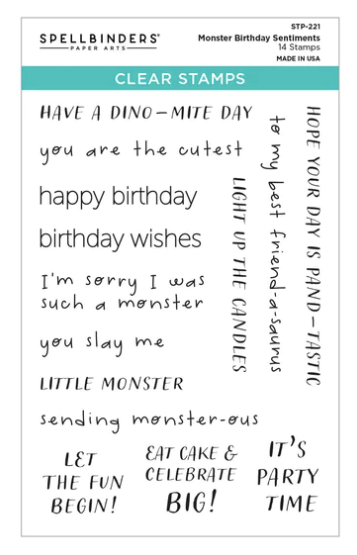 SPELLBINDERS®
PAPER ARTS
STP-221
Monster Birthday Sentiments
14 Stamps
MADE IN USA
CLEAR STAMPS
HAVE A DINO-MITE DAY
you are the cutest
happy birthday
birthday wishes
I'm sorry I was
such a monster
you slay me
LITTLE MONSTER
sending monster-ous
LIGHT UP THE CANDLES
to my best friend-a-saurus
HOPE YOUR DAY IS PAND-TASTIC
LET
THE FUN
BEGIN!
EAT CAKE &
CELEBRATE
BIG!
IT'S
PARTY
TIME